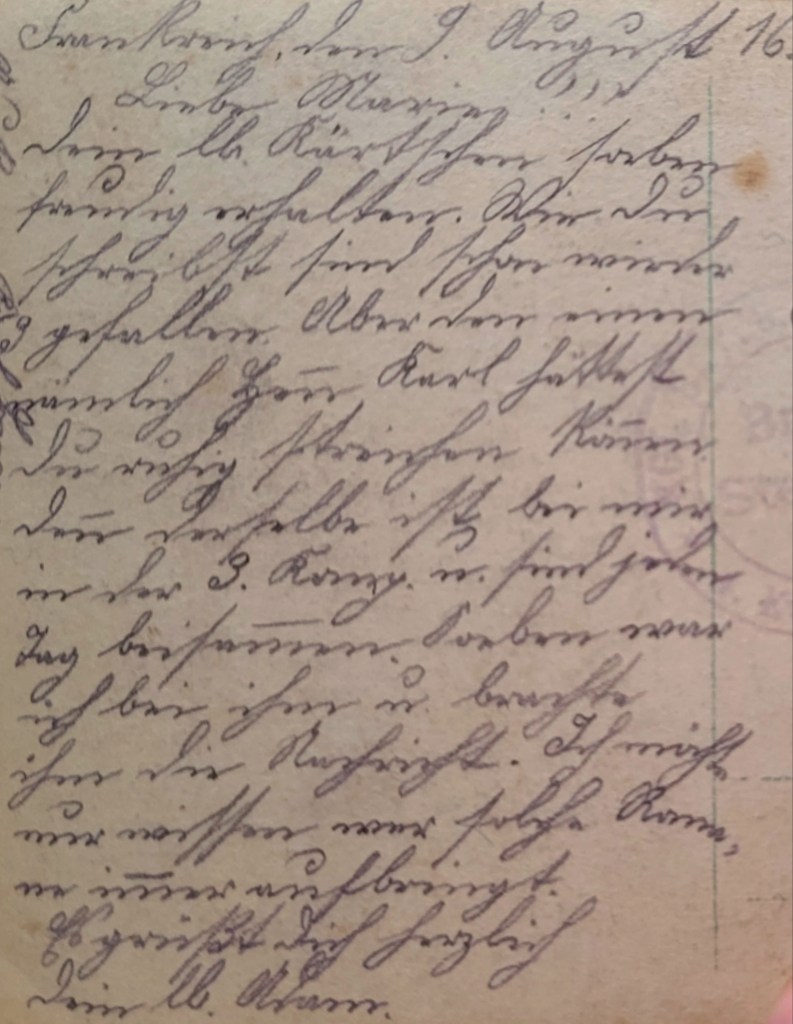 Frankreich, den 9. August 16.
Liebe Marie!
Dein lb. Kärtchen soeben
freudig erhalten. Wie Du
schreibst sind schon wieder
3 gefallen. Aber den einen
nämlich Hen̅ Karl hättest
Du ruhig streichen kön̅en
den̅ derselbe ist bei mir
in der 3. Komp. u. sind jeden
Tag beisam̅en. Soeben war
ich bei ihm u. brachte
ihm die Nachricht. Ich möchte
nur wissen wer solche
im̅er aufbringt.
Es grüßt Dich herzlich
Dein lb. Adam.